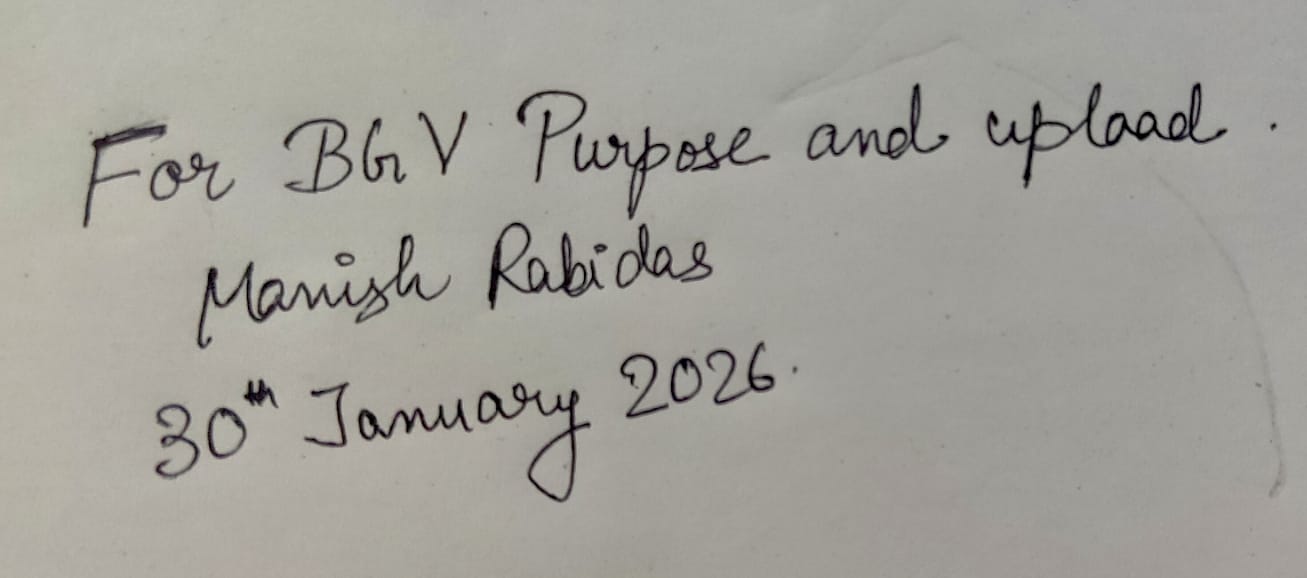 For BGV Purpose and upload.
Manish Rabidas
30th January 2026.